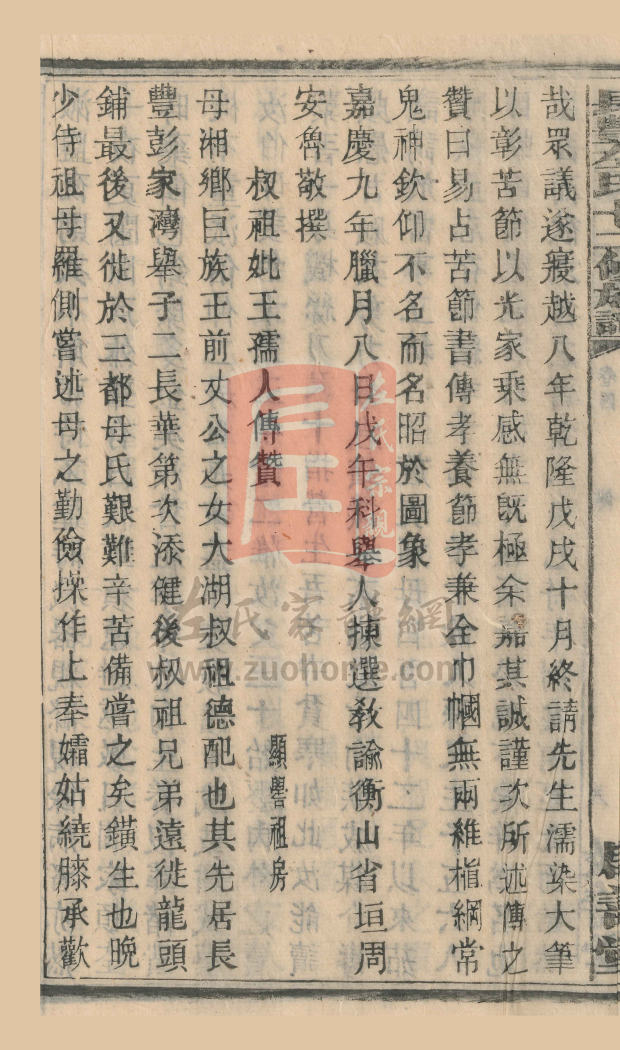 哉眾議遂寢越八年乾隆戊戌十月終請先生濡染大筆
以彰苦節以光家乘感無既極余嘉其誠謹次所述傳之
贊曰易占苦節書傳孝養節孝兼全巾幗無兩維楷綱常
鬼神欽仰不名而名昭於圖象
嘉慶九年臘月八日戊午科舉人揀選教諭衡山省垣周
安魯敬撰
叔祖妣王孺人傳贊
顯譽祖房
母湘鄉巨族王前丈公之女大湖叔祖德配也其先居長
豐彭家灣舉子二長華第次添健後叔祖兄弟遠徙龍頭
鋪最後又徙於三都母氏艱難辛苦備嘗之矣鐄生也晚
少侍祖母羅側嘗述母之勤儉操作上奉孀姑繞膝承歡
左氏家譜網
www.zuohome.com